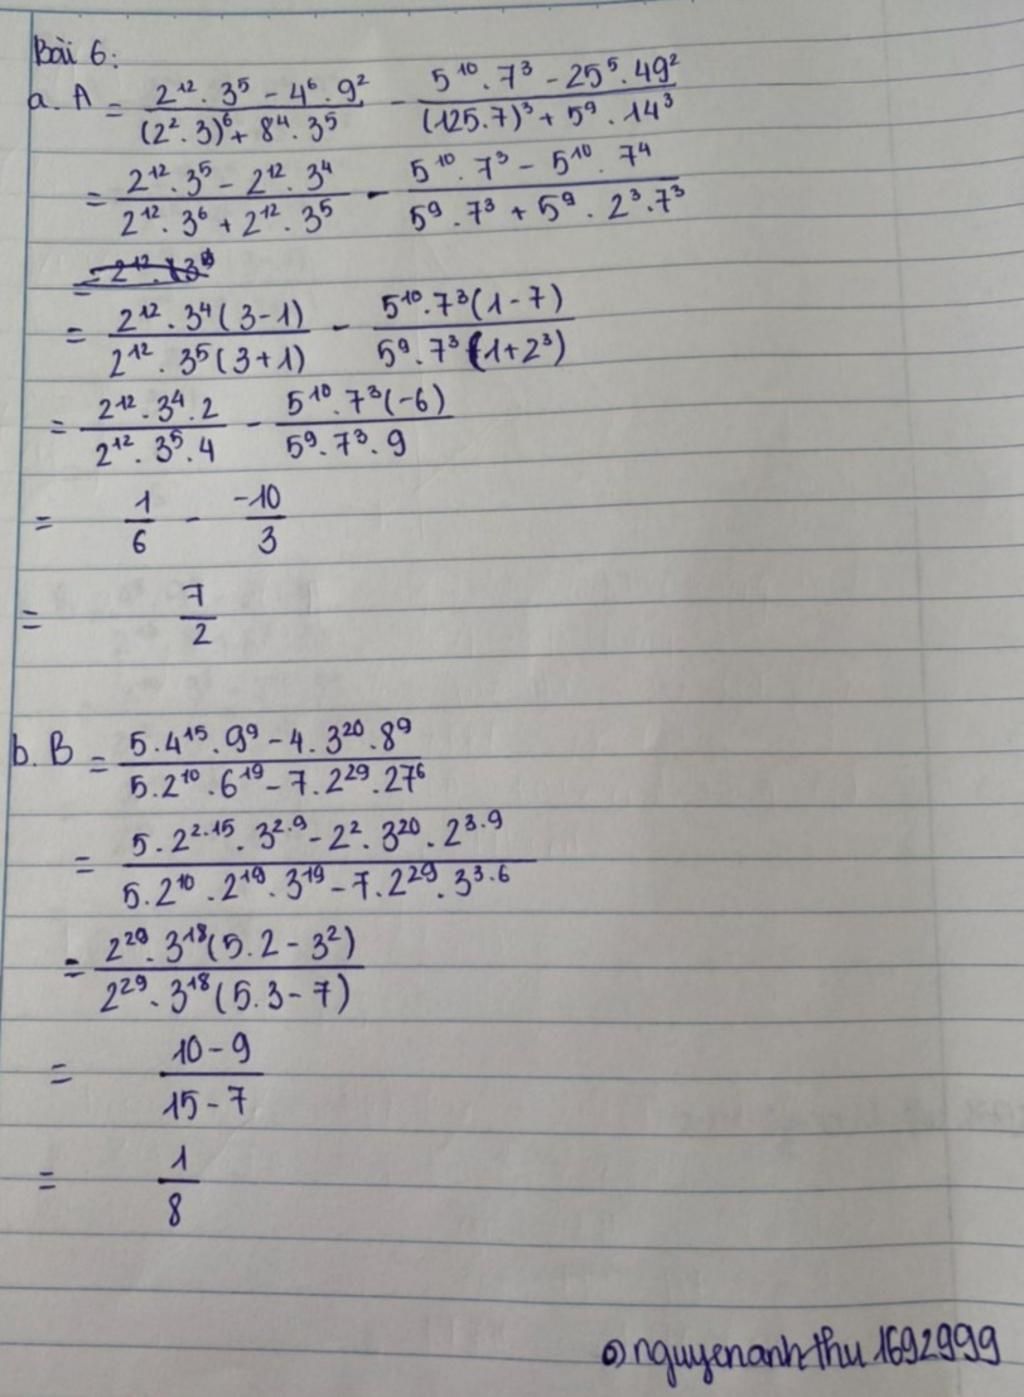 Bài 6:
a. A = \frac{2^{12} . 3^5 - 4^6 . 9^2}{(2^2 . 3)^6 + 8^4 . 3^5} - \frac{5^{10} . 7^3 - 25^5 . 49^2}{(125.7)^3 + 5^9 . 14^3}
= \frac{2^{12} . 3^5 - 2^{12} . 3^4}{2^{12} . 3^6 + 2^{12} . 3^5} - \frac{5^{10} . 7^3 - 5^{10} . 7^4}{5^9 . 7^3 + 5^9 . 2^3 . 7^3}
= \frac{2^{12} . 3^4 (3 - 1)}{2^{12} . 3^5 (3 + 1)} - \frac{5^{10} . 7^3 (1 - 7)}{5^9 . 7^3 (1 + 2^3)}
= \frac{2^{12} . 3^4 . 2}{2^{12} . 3^5 . 4} - \frac{5^{10} . 7^3 (-6)}{5^9 . 7^3 . 9}
= \frac{1}{6} - \frac{-10}{3}
= \frac{7}{2}
b. B = \frac{5 . 4^{15} . 9^9 - 4 . 3^{20} . 8^9}{5 . 2^{10} . 6^{19} - 7 . 2^{29} . 27^6}
= \frac{5 . 2^{2.15} . 3^{2.9} - 2^2 . 3^{20} . 2^{3.9}}{5 . 2^{10} . 2^{19} . 3^{19} - 7 . 2^{29} . 3^{3.6}}
= \frac{2^{29} . 3^{18} (5 . 2 - 3^2)}{2^{29} . 3^{18} (5 . 3 - 7)}
= \frac{10 - 9}{15 - 7}
= \frac{1}{8}
@nguyenanhthu1692999